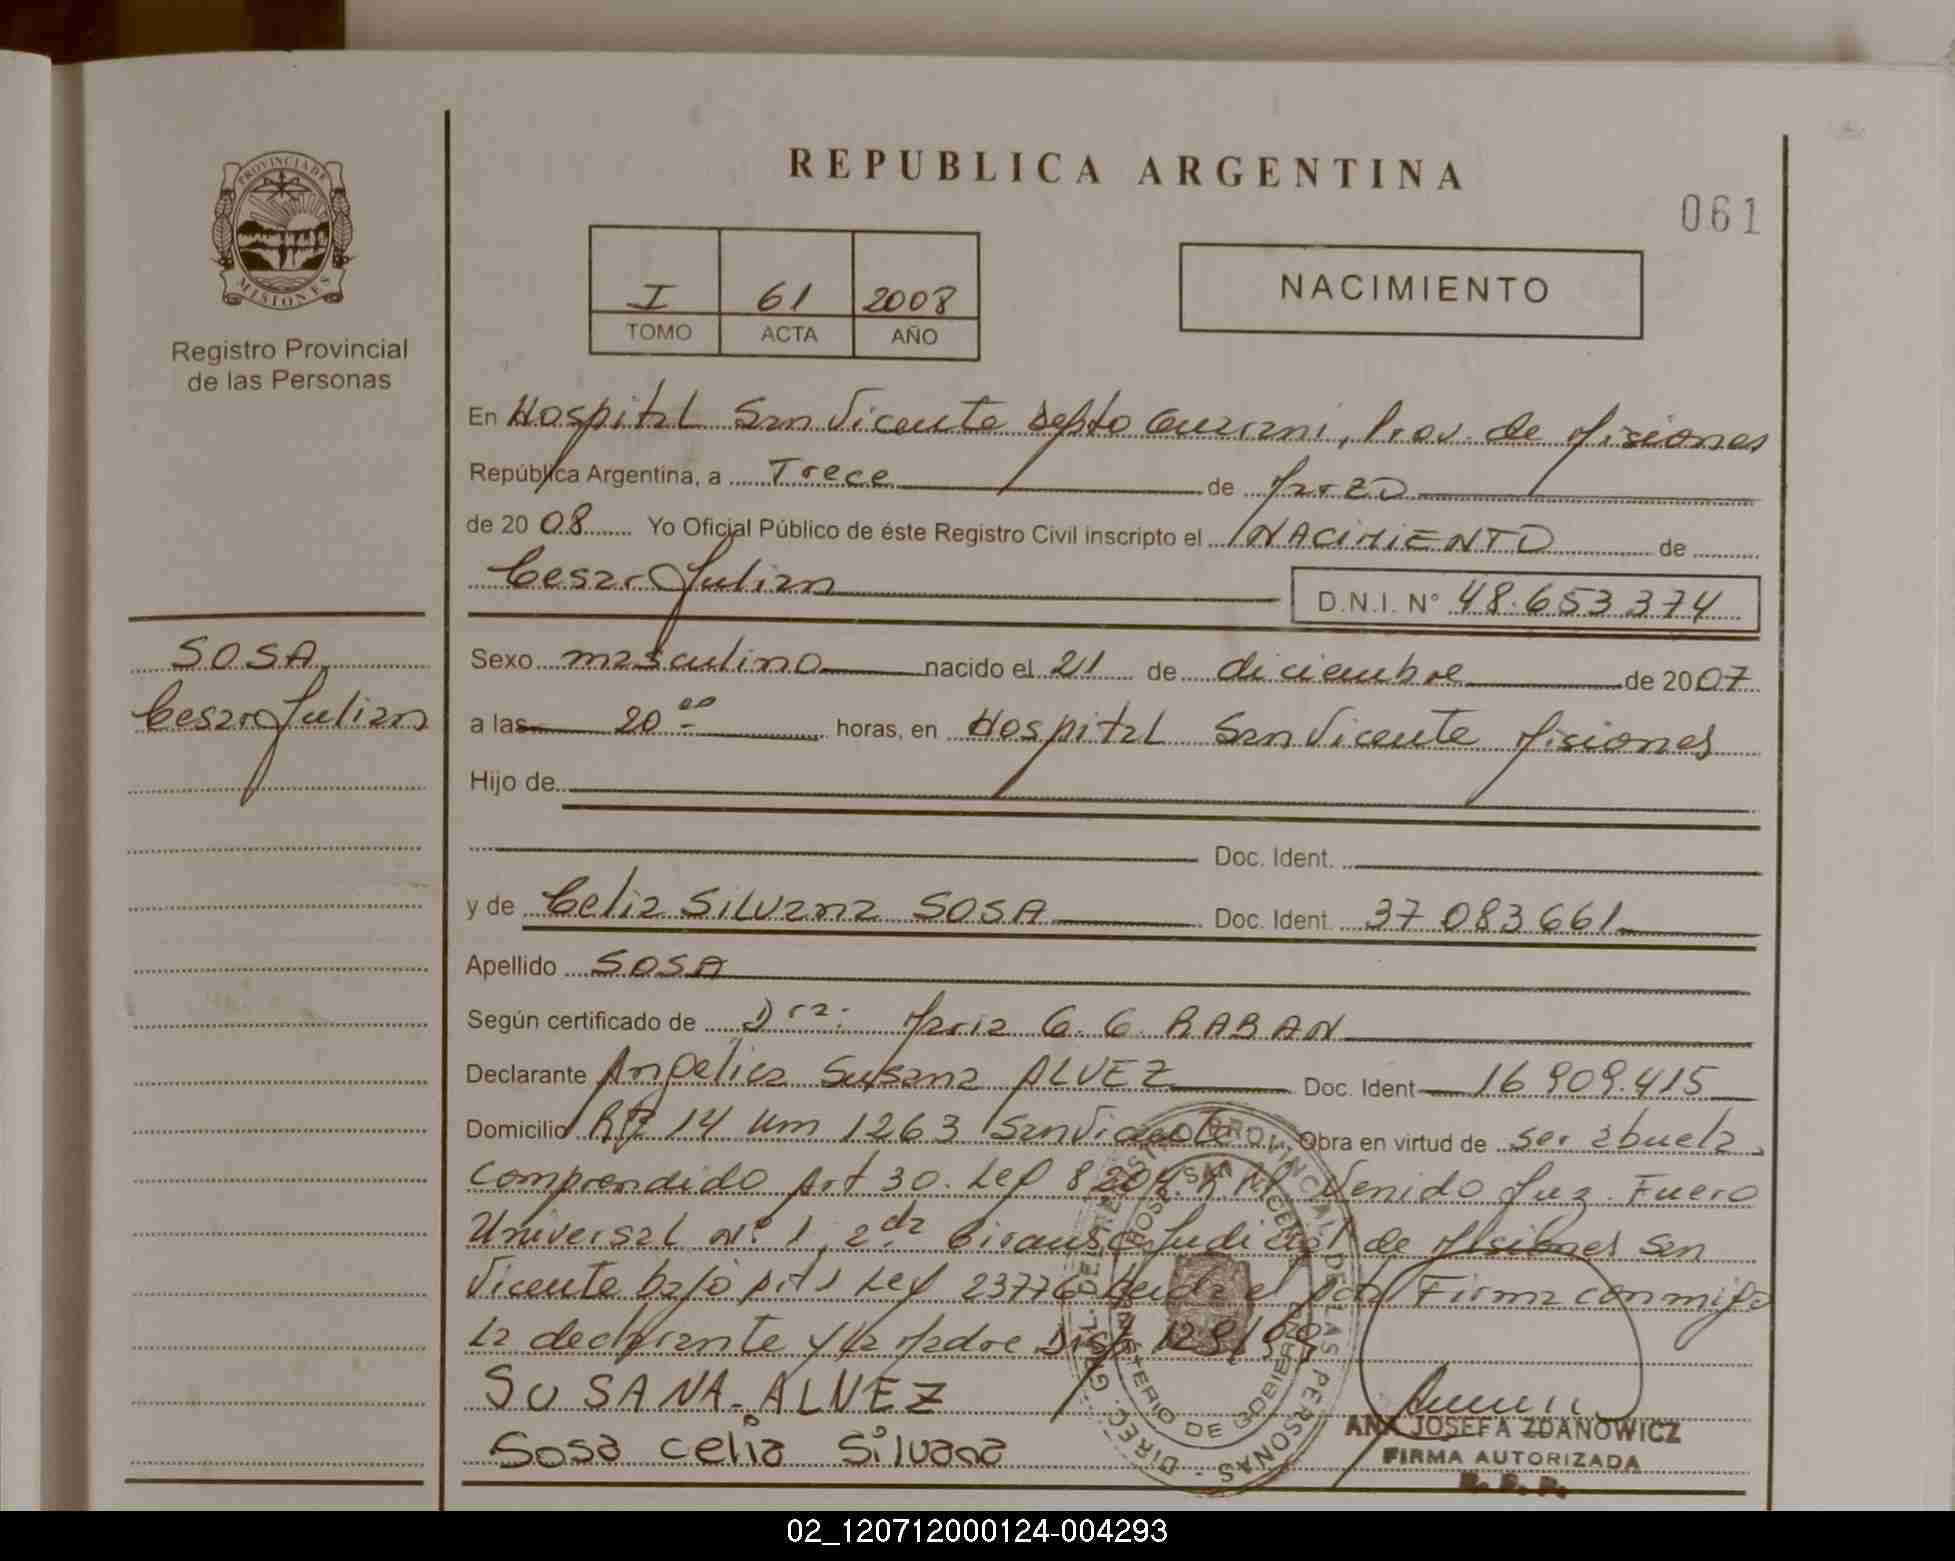 REPUBLICA ARGENTINA
061
PROVINCIA DE
MISIONES
Registro Provincial
de las Personas
I 61 2008
TOMO ACTA AÑO
NACIMIENTO
En Hospital San Vicente Depto Guarani, Prov. de Misiones
República Argentina, a Trece de Marzo
de 20 08 Yo Oficial Público de éste Registro Civil inscripto el NACIMIENTO de
Cesar Julian D.N.I. N° 48.653.374
SOSA
Cesar Julian
Sexo masculino nacido el 21 de diciembre de 2007
a las 20 00 horas, en Hospital San Vicente Misiones
Hijo de
Doc. Ident.
y de Celia Silvana SOSA Doc. Ident. 37 083 661
Apellido SOSA
Según certificado de Dra: Maria G. G. RABAN
Declarante Angelica Susana ALVEZ Doc. Ident 16 909.415
Domicilio 14 Km 1263 San Vicente Obra en virtud de ser abuela
Comprendido Art 30. Ley 8204 Venido Juz. Fuero
Universal N° 1, 2da Circunsc Judicial de Misiones San
Vicente bajo Ley 23776 Firma conmigo
La declarante y la Madre Disp 128/
SUSANA ALVEZ
Sosa celia Silvana
ANA JOSEFA ZDANOWICZ
FIRMA AUTORIZADA
R. P. P.
02_120712000124-004293